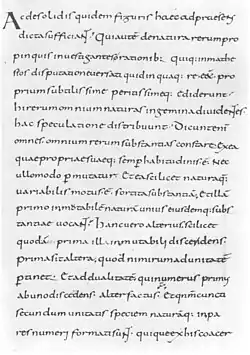 Ac de solidis quidem figuris haec ad praesens
dicta sufficiant. Qui autem de natura rerum pro
pinquis inuestigantes rationib; Quiq; in mathe
seos disputatione uersati quid in quaq; re esset pro
prium subtilissime peritissimeq; ediderunt.
hi rerum omnium naturas in gemina diuidentes
hac speculatione distribuunt. Dicunt enim
omnes omnium rerum substantias constare. Ex ea
quae propriae suaeq; semp habitudinis. e. Nec
ullo modo p mutatur. Et ea scilicet natura q;
uariabilis motus. e. sortita substantiam. Et illam
primo inmutabilem naturam unius eiusdemq; subs
tantiae uocant. hanc uero alterius. scilicet
quod a prima illa inmutabili discedens.
prima sit altera, quod nimirum ad unitate
p tinet. Et ad dualitate qui numerus primus
ab uno discedens. alter factus. est. Et qm cuncta
secundum unitatis speciem naturamq; inpa
res numeri formati sunt. quiq; ex his coacer